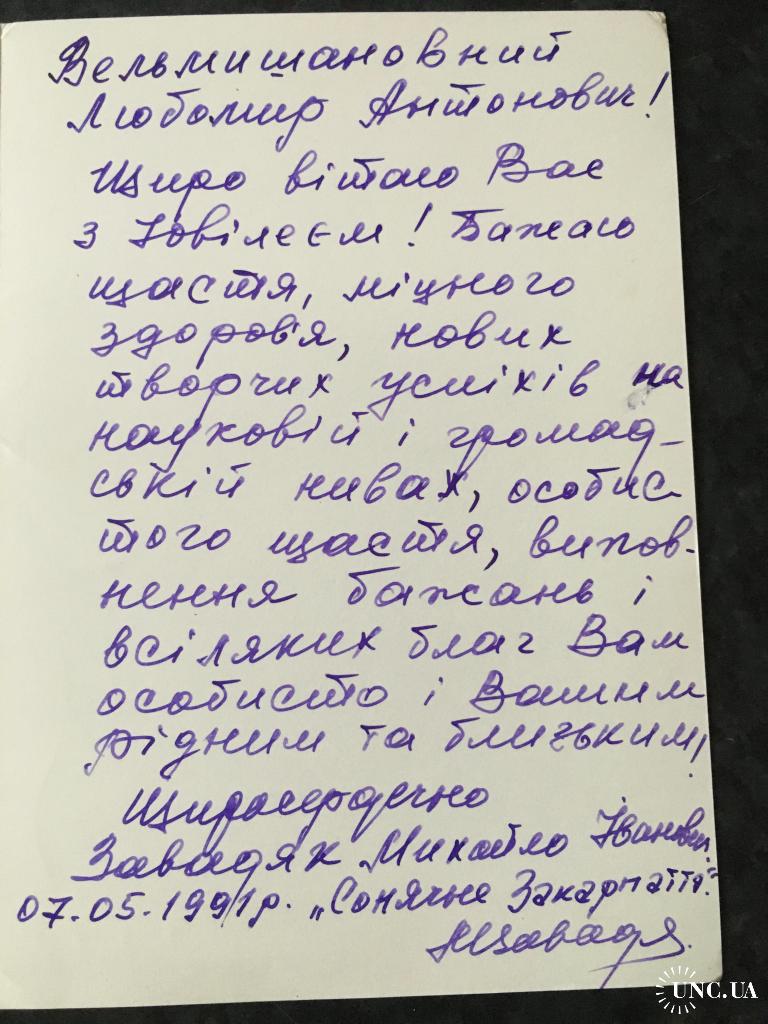 Вельмишановний
Любомир Антонович!
Щиро вітаю Вас
з Ювілеєм! Бажаю
щастя, міцного
здоров'я, нових
творчих успіхів на
науковій і громад-
ській нивах, особис-
того щастя, виков-
нення бажань і
всіляких благ Вам
особисто і Вашим
рідним та близьким!
Щиросердечно
Завадяк Михайло Іванович.
07.05.1991р. „Сонячне Закарпаття".
МЗавадя
UNC.UA